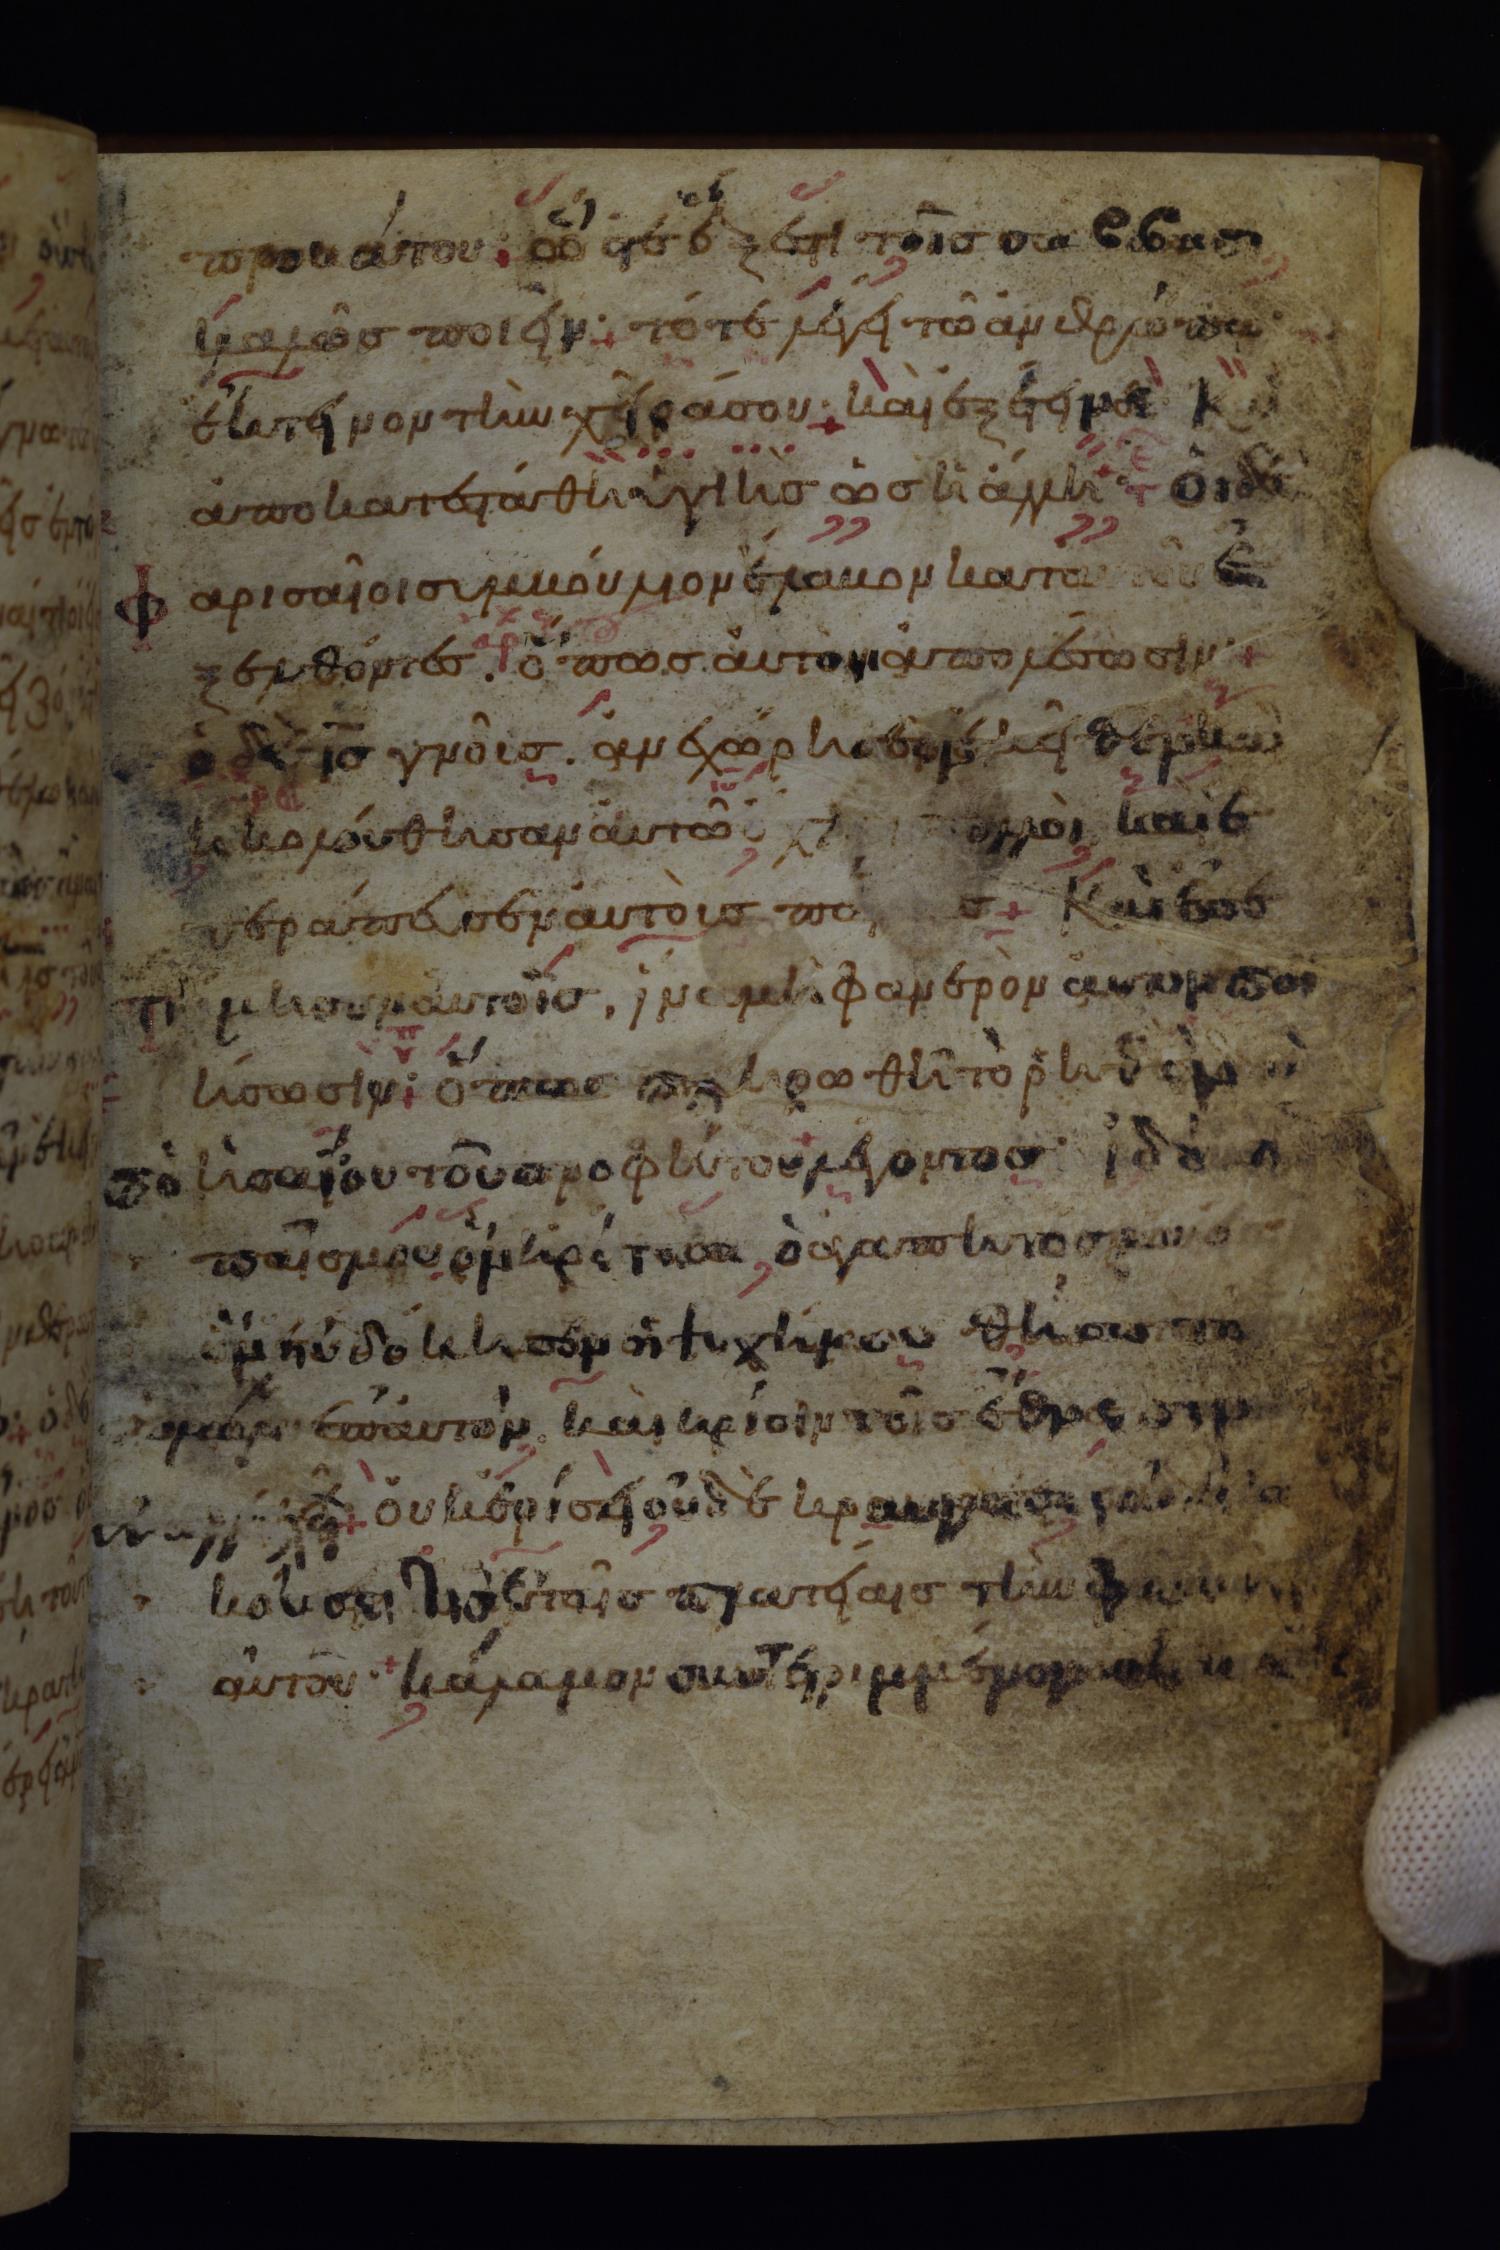 προβάτου· ὥστε ἔξεστι τοῖς σάββασι
καλῶς ποιεῖν· τότε λέγει τῶ ἀνθρώπω
ἔκτεινον τὴν χεῖρα σου· καὶ ἐξέτεινε καὶ
ἀποκατεστάθη ὑγιὴς ὡς ἡ ἄλλη· Οἱ δὲ
φαρισαῖοι συμβούλιον ἔλαβον κατ αὐτοῦ ἐ
ξελθόντες. ὅπως αὐτὸν ἀπολέσωσιν·
ὁ δὲ ις γνοὺς. ἀνεχώρησεν ἐκεῖθεν καὶ
ἠκολούθησαν αὐτῶ ὄχλοι πολλοὶ καὶ ἐ
θεράπευσεν αὐτοὺς πάντας· Καὶ ἐπε
τίμησεν αὐτοῖς, ἵνα μὴ φανερὸν αὐτὸν ποι
ήσωσιν· ὅπως πληρωθῆ τὸ ῥηθὲν
ἠσαΐου τοῦ προφήτου λέγοντος· ἰδοὺ ὁ
παῖς μου ὃν ἡρέτισα, ὁ ἀγαπητός μου
ὃν ηὐδόκησεν ἡ ψυχή μου θήσω τὸ
ἐπ αὐτὸν. καὶ κρίσιν τοῖς ἔθνεσιν
οὐκ ἐρίσει οὐδὲ κραυγάσει οὐδὲ
ἀκούσει τις ἐν ταῖς πλατείαις τὴν φωνὴν
αὐτοῦ· κάλαμον συντετριμμένον οὐ κατε